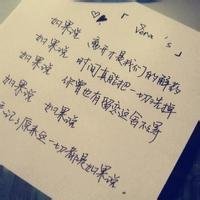 「 Sena 's 」
如果说 离开才是我们的解药
如果说 时间真能把一切洗掉
如果说 你曾也有留恋这旧不舍
如果说 如果说
忘记了原来这一切都是如果说